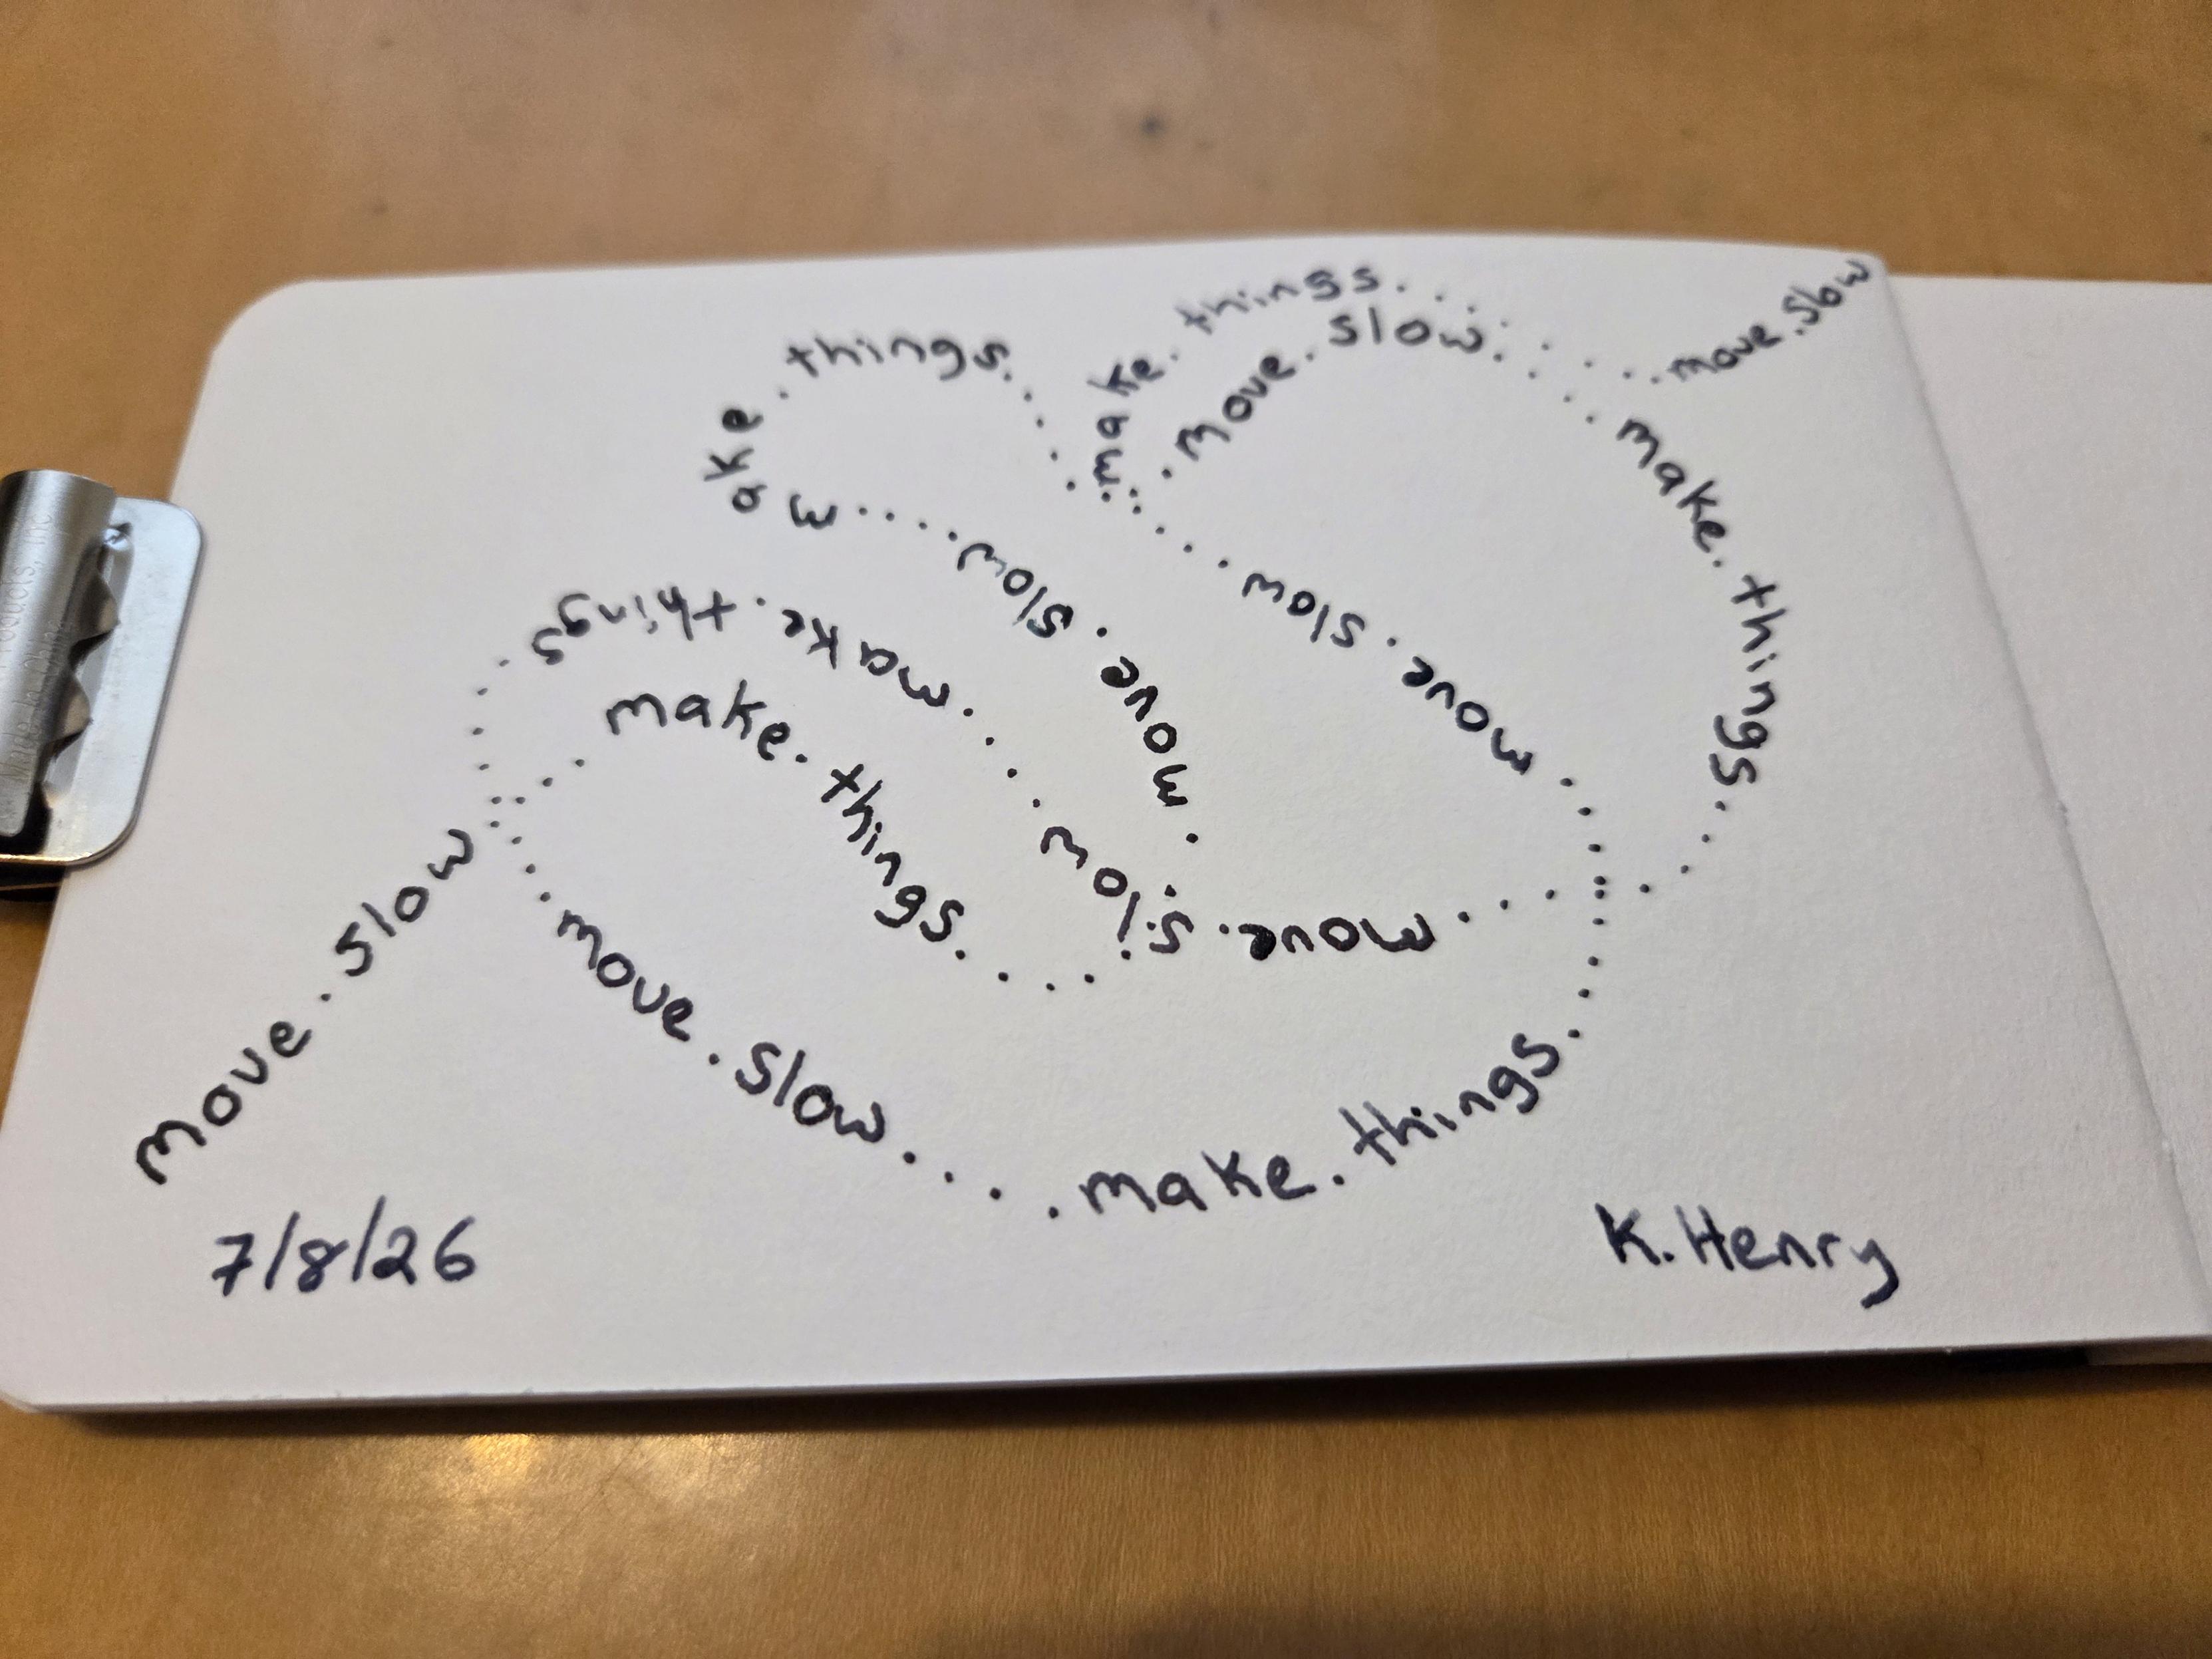 move. slow
make. things
move. slow
make. things
move. slow
make. things
move. slow
make. things
move. slow
make. things
move. slow
make. things
move. slow
7/8/26
K. Henry